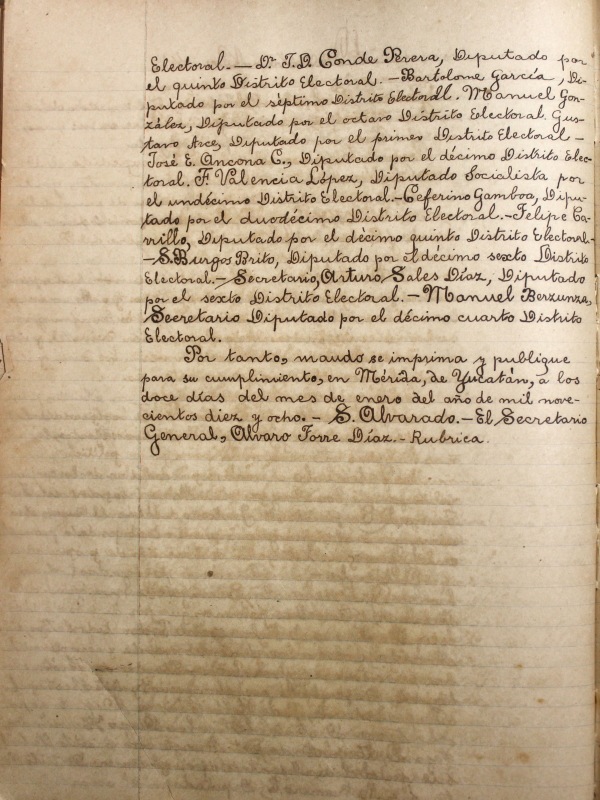 Electoral.— Dr. J. D. Conde Perera, Diputado por
el quinto Distrito Electoral. —Bartolome García, Di-
putado por el séptimo Distrito Electoral. Manuel Gon-
zález, Diputado por el octavo Distrito Electoral. Gus-
tavo Arce, Diputado por el primer Distrito Electoral—
José E. Ancona C., Diputado por el décimo Distrito Elec-
toral. F. Valencia López, Diputado Socialista por
el undécimo Distrito Electoral.—Ceferino Gamboa, Dipu-
tado por el duodécimo Distrito Electoral.—Felipe Ca-
rrillo, Diputado por el décimo quinto Distrito Electoral.-
—S. Burgos Brito, Diputado por el décimo sexto Distrito
Electoral.—Secretario, Arturo Sales Díaz, Diputado
por el sexto Distrito Electoral. —Manuel Berzunza,
Secretario Diputado por el décimo cuarto Distrito
Electoral.
Por tanto, mando se imprima y publique
para su cumplimiento, en Mérida, de Yucatán, a los
doce días del mes de enero del año de mil nove-
cientos diez y ocho. — S. Alvarado. — El Secretario
General, Alvaro Torre Díaz. - Rubrica.